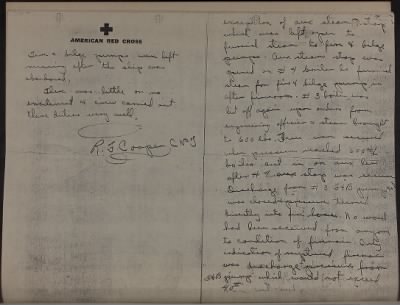 AMERICAN RED CROSS
Fire & bilge pumps were left
running after the ship was
abandoned.
There was little or no
excitement & crew carried out
their duties very well.
R. J. Cooper C.M.
exception of aux steam
which was left open to
furnish steam to fire & bilge
pumps. Aux steam stop was
opened on # 4 boiler to furnish
steam for fire & bilge pumps in
after fireroom. # 3 boiler was
lit off again upon orders from
engineering officer & steam brought
to 600 lbs. There was
when pressure reached 500#
boiler cut in on aux line
after # 4 aux stop was secured
Discharge from # 3 F+B pump
was
directly into fire
had been received from anyone
to condition of fireroom. Only
indication of
was discharge pressure from
F+B pump which would not exceed